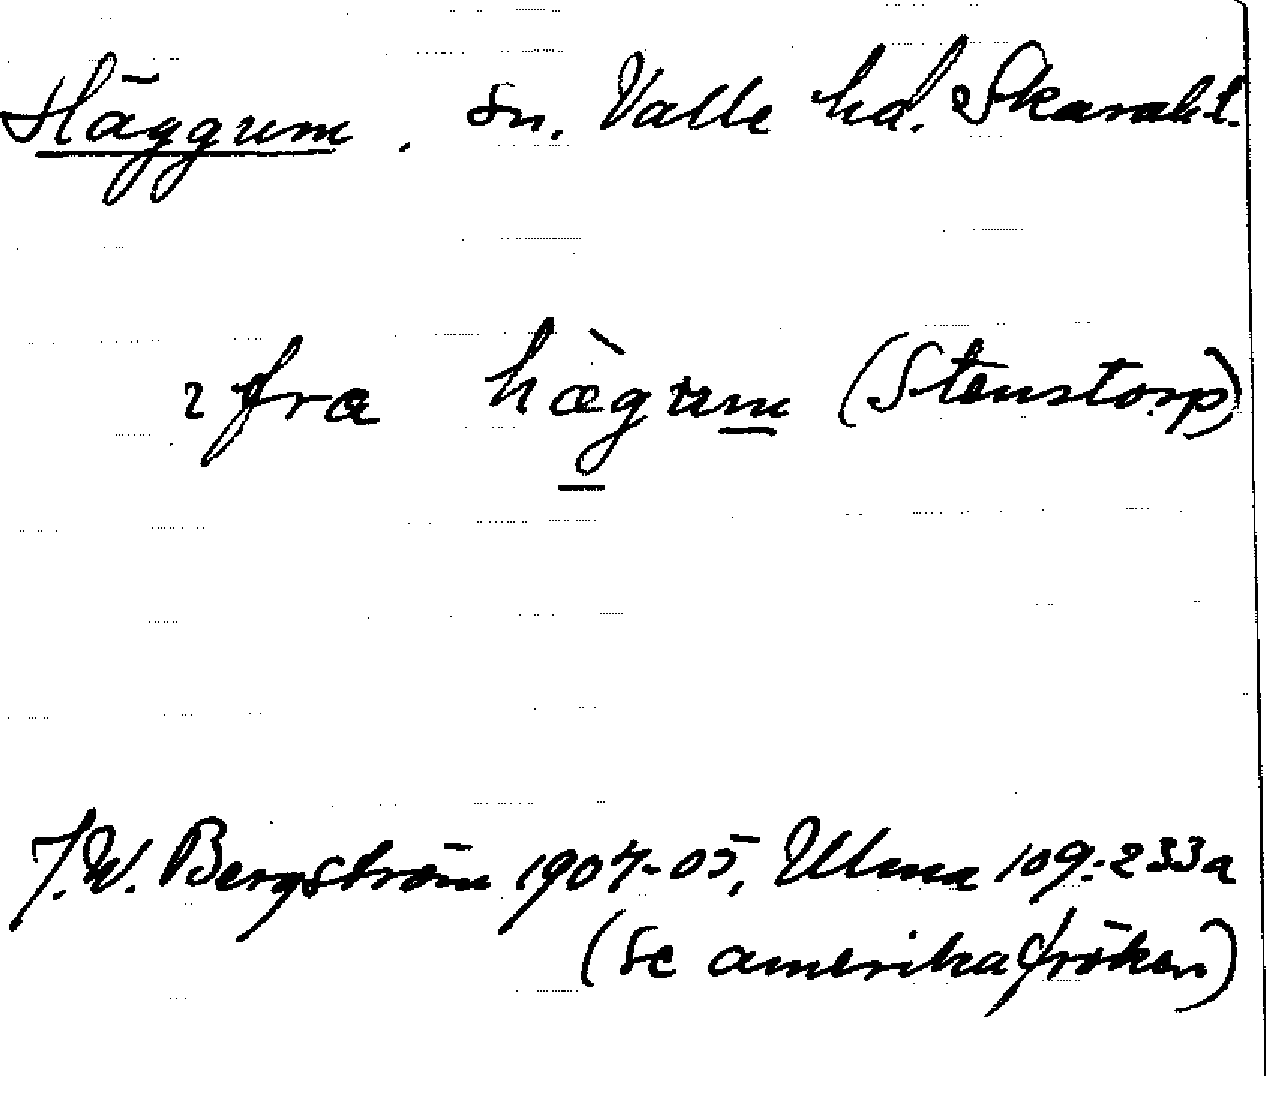 Häggum, sn. Valle hd. Skarabl.
frɑ hæ̀gum (Stenstorp)
J.W. Bergström 1904-05, Ulma 109:233a
(se amerikafröken)